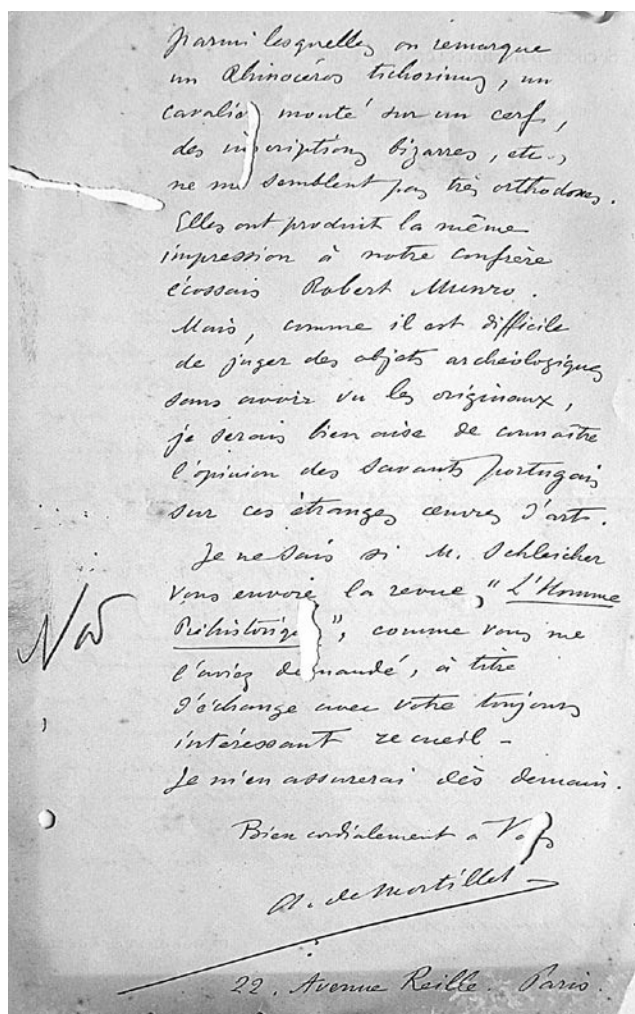 parmi lesquelles on remarque
un Rhinocéros tichorinus, un
cavalier monté sur un cerf,
des inscriptions bizarres, etc.,
ne me semblent pas très orthodoxes.
Elles ont produit la même
impression à notre confrère
écossais Robert Munro.
Mais, comme il est difficile
de juger des objets archéologiques
sans avoir vu les originaux,
je serais bien aise de connaître
l'opinion des savants portugais
sur ces étranges œuvres d'art.
Je ne sais si M. Schleicher
vous envoie la revue, "L'Homme
Préhistorique", comme vous me
l'aviez demandé, à titre
d'échange avec votre toujours
intéressant recueil –
Je m'en assurerai dès demain.
Bien cordialement à Vous
A. de Mortillet
22, Avenue Reille. Paris.